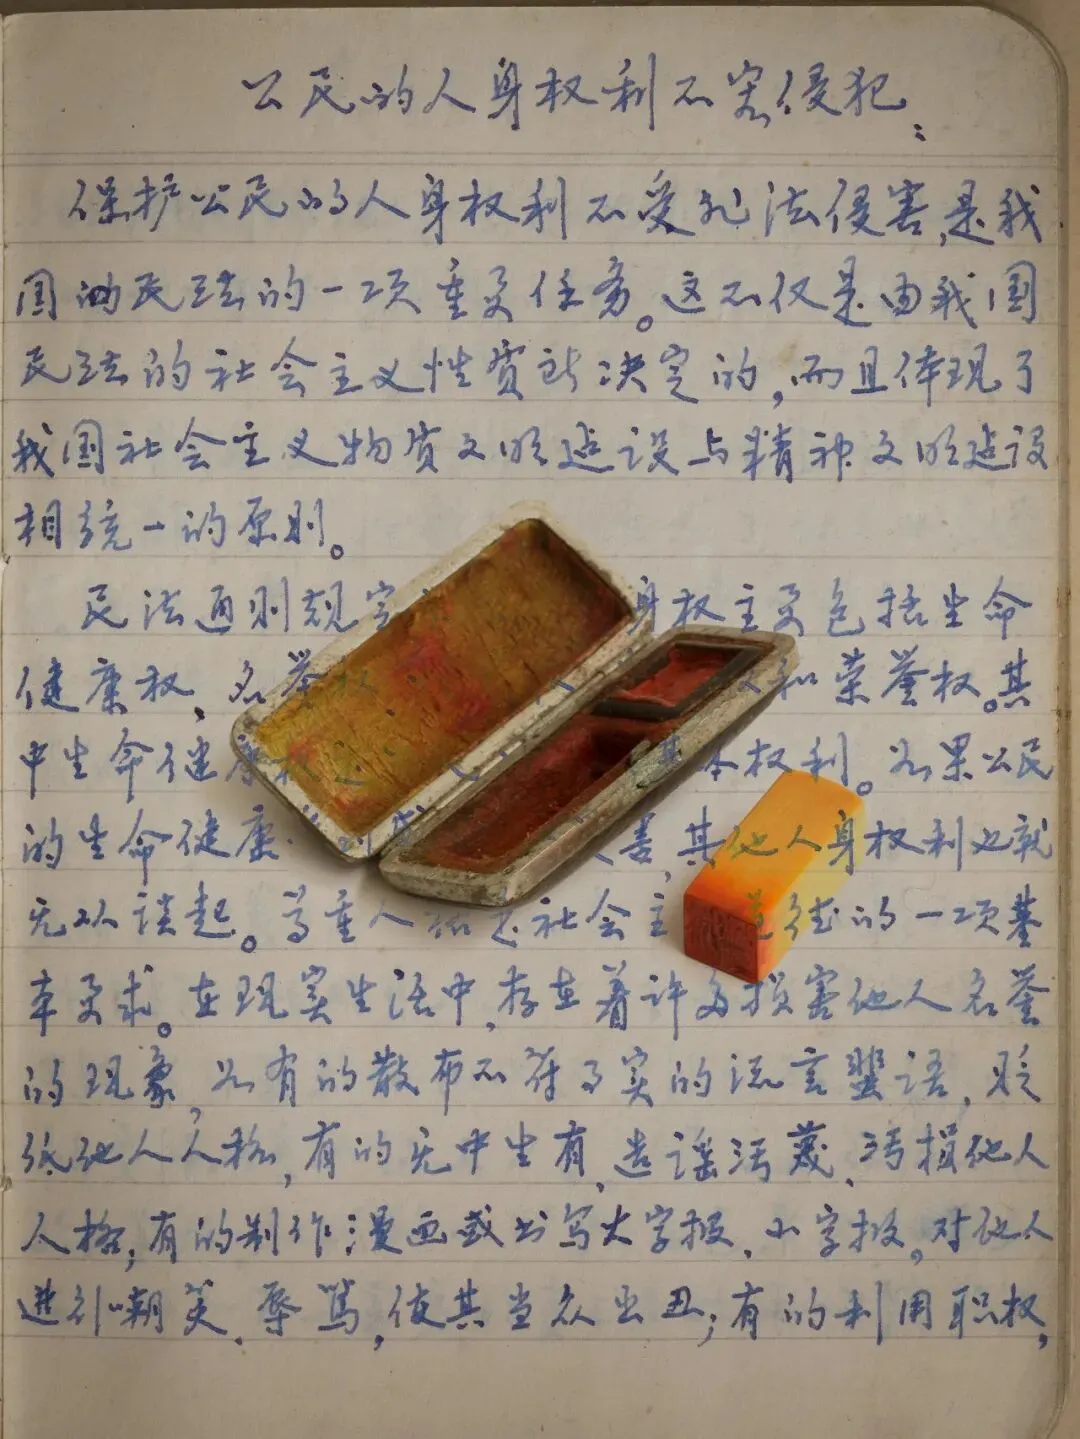 公民的人身权利不容侵犯:
保护公民的人身权利不受非法侵害,是我
国的民法的一项重要任务。这不仅是由我国
民法的社会主义性质所决定的,而且体现了
我国社会主义物质文明建设与精神文明建设
相统一的原则。
民法通则规定 身权主要包括生命
健康权、名誉权 和荣誉权。其
中生命健康权 本权利。如果公民
的生命健康 害,其他人身权利也就
无从谈起。尊重人格是社会主 道德的一项基
本要求。在现实生活中,存在着许多损害他人名誉
的现象,如有的散布不符事实的流言蜚语,贬
低他人人格,有的无中生有,造谣污蔑,污损他人
人格;有的制作漫画或书写大字报、小字报,对他人
进行嘲笑、辱骂,使其当众出丑;有的利用职权,